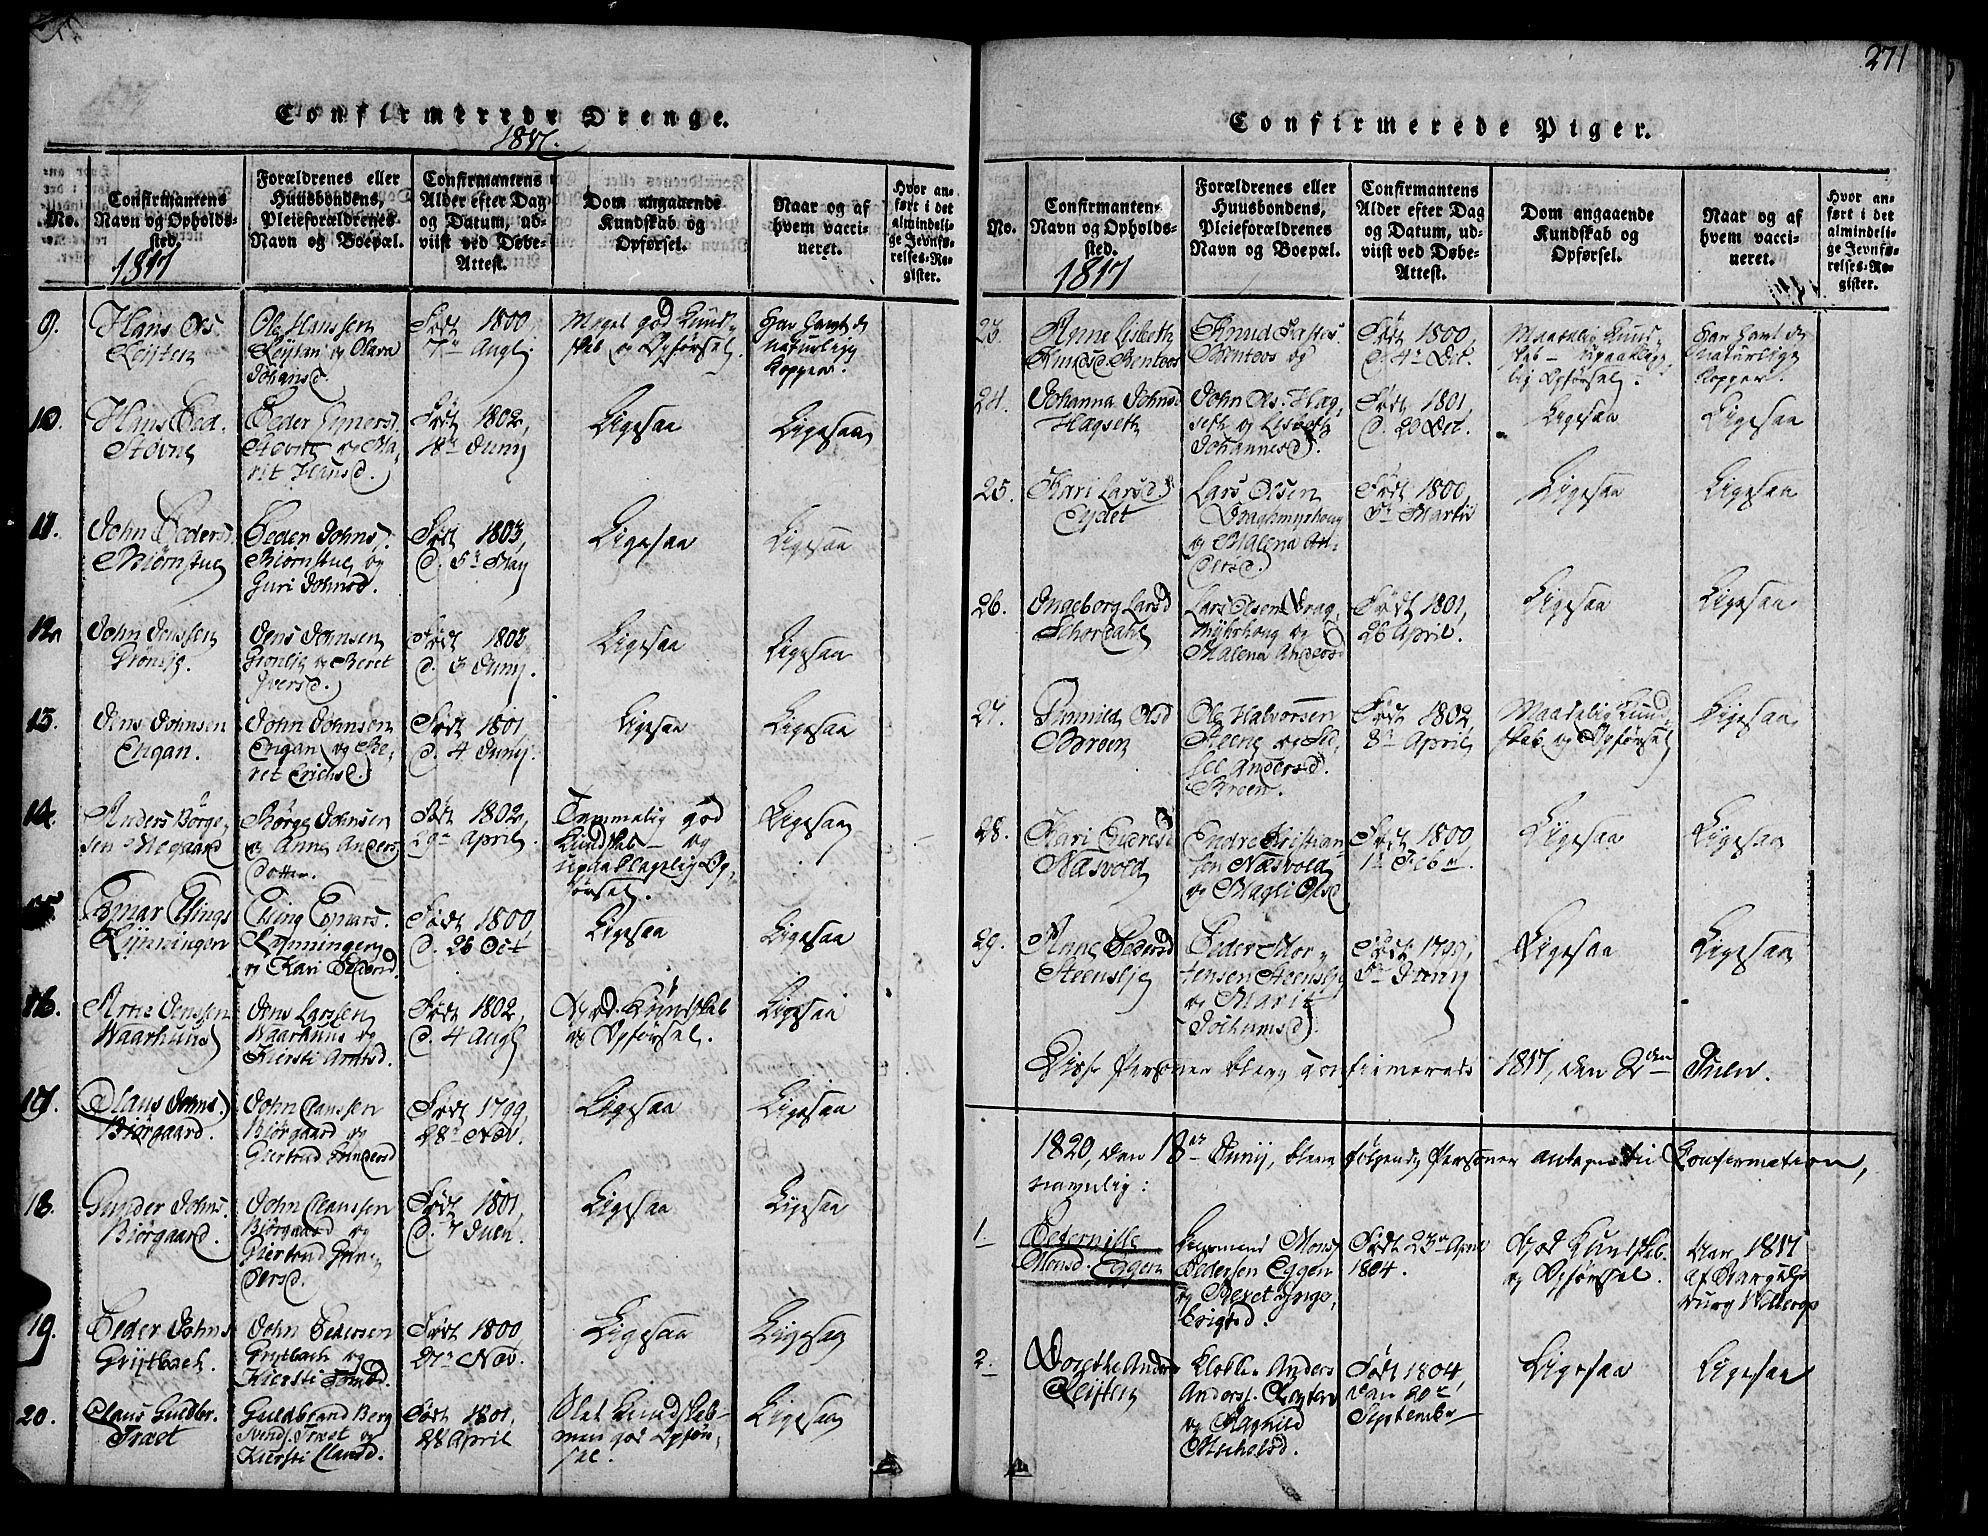 Confirmerede Drenge.
1817.
No.
Confirmantens
Navn og Opholds-
sted.
1817
Forældrenes eller
Huusbondens,
Pleieforældrenes
Navn og Boepæl.
Confirmantens
Alder efter Dag
og Datum, ud-
viist ved Døbe-
Attest.
Dom angaaende
Kundskab og
Opførsel.
Naar og af
hvem vacci-
neret.
Hvor an-
ført i det
almindeli-
ge Jevnfø-
relses-Re-
gister.
9.
Hans Ols.
Løjten
Ole Hanssen
Løjten og Olava
Johansd.
Født 1800,
7de Augl.
Meget god Kund-
skab og Opførsel.
Har havt de
naturlige
Kopper.
10.
Hans Ped.
Stovne
Peder
Stovne og Ma-
rit Hansd.
Født 1802,
18de Junij
Ligesaa
Ligesaa
11.
John Peders.
Biørnstue
Peder Johns.
Biørnstue og
Guri Johnsd.
Født 1803,
d. 5te May
Ligesaa
Ligesaa
12.
John Jenssen
Grønlie
Jens Jonsen
Grønlie og Beret
Iversd.
Født 1803,
d. 3 Junij.
Ligesaa
Ligesaa
13.
Jens Johnsen
Engan.
John Johnsen
Engan og Be-
ret Erichsd.
Født 1801,
d. 4 Junij.
Ligesaa
Ligesaa
14.
Anders Børge-
sen
Børge Johnsen
og Anne Anders
dotter.
Født 1802,
29de April
Temmelig god
Kundskab og
upaaklagelig Op-
førsel.
Ligesaa
15.
Esmar Ellings
Elling Esmars.
og Kari Pedersd.
Født 1800,
d. 26 Oct
Ligesaa
Ligesaa
16.
Arne Jenssen
Waarhuus
Jens Larssen
Waarhuus og
Kiersti Arntsd.
Født 1802,
d. 4 Augl
God Kundskab
og Opførsel.
Ligesaa
17.
Claus Johns.
Biørgaard.
John Claussen
Biørgaard og
Giertrud Gundersd
Født 1799,
28de Nov.
Ligesaa
Ligesaa
18.
Gunder Johns.
Biørgaard.
John Claussen
Biørgaard og
Giertrud Gun-
dersd.
Født 1801,
d. 7 Juen.
Ligesaa
Ligesaa
19.
Peder Johns
Grytbach.
John Pedersen
Grytbach og
Kiersti Tomsd.
Født 1800
27de Nov.
Ligesaa
Ligesaa
20.
Claus Guldbr.
Træet
Guldbrand Berg
Svends. Træet og
Kiersti Clausd.
Født 1801,
28 April
Slet Kundskab
men god Opfør-
sel.
Ligesaa
271
Confirmerede Piger.
No.
Confirmantens
Navn og Opholds-
sted.
1817
Forældrenes eller
Huusbondens,
Pleieforældrenes
Navn og Boepæl.
Confirmantens
Alder efter Dag
og Datum, ud-
viist ved Døbe-
Attest.
Dom angaaende
Kundskab og
Opførsel.
Naar og af
hvem vacci-
neret.
Hvor an-
ført i det
almindeli-
ge Jevnfø-
relses-Re-
gister.
23.
Anne Lisbeth
Knudsd. Bentøos
Knud
Bentøos og
Født 1800,
d. 4de Dec.
Maadelig Kund-
skab - upaaklage-
lig Opførsel.
Har havt de
naturlige
Kopper.
24.
Johanna Johnsd
Hagseth
John Ols. Hag-
seth og Lisbeth
Johannesd.
Født 1801,
d. 20 Dec.
Ligesaa
Ligesaa
25.
Kari Larsd.
Eydet
Lars Olsen
Dragmyrhoug
og Malena An-
dersd.
Født 1800,
5te Martii
Ligesaa
Ligesaa
26.
Ingeborg Larsd
Schordahl
Lars Olsen Drag-
myhrhoug og
Malena Andersd
Født 1801,
26 April.
Ligesaa
Ligesaa
27.
Gunild Olsd
Broen
Ole Halvorsen
Steene og Sis-
sel Andersd.
Broen.
Født 1802,
8de April
Maadelig Kund-
skab og Opførsel
Ligesaa
28.
Kari Endresd.
Næsvold
Endre Kristian-
sen Næsvold
og Magli Olsd
Født 1800,
1te Feb.
Ligesaa
Ligesaa
29.
Anne Pedersd
Steenslie
Peder Mor-
tensen Steenslie
og Marit
Jochumsd.
Født 1799,
5te Junij
Ligesaa
Ligesaa
Disse Personer bleve confirmerede 1817, den 2den Juen.
1820, den 18de Junij, bleve følgende Personer antagne til Confirmation,
navnlig:
1.
Pedernille
Monsd. Eggen
Mons
Pedersen Eggen
og Beret Inge-
brigtsd.
Født 23de April
1804.
God Kundskab
og Opførsel.
Aar 1817
af
Willergs
2.
Dorethe Andersd
Løjten
Klokker Anders
Anders. Løjten
og Ragnild
Michelsd.
Født 1804,
den 20de
September
Ligesaa
Ligesaa